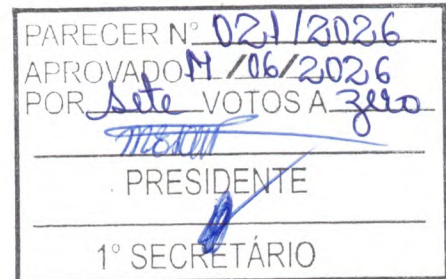 PARECER N° 021/2026
APROVADO 11/06/2026
POR Sete VOTOS A Zero
PRESIDENTE
1° SECRETÁRIO